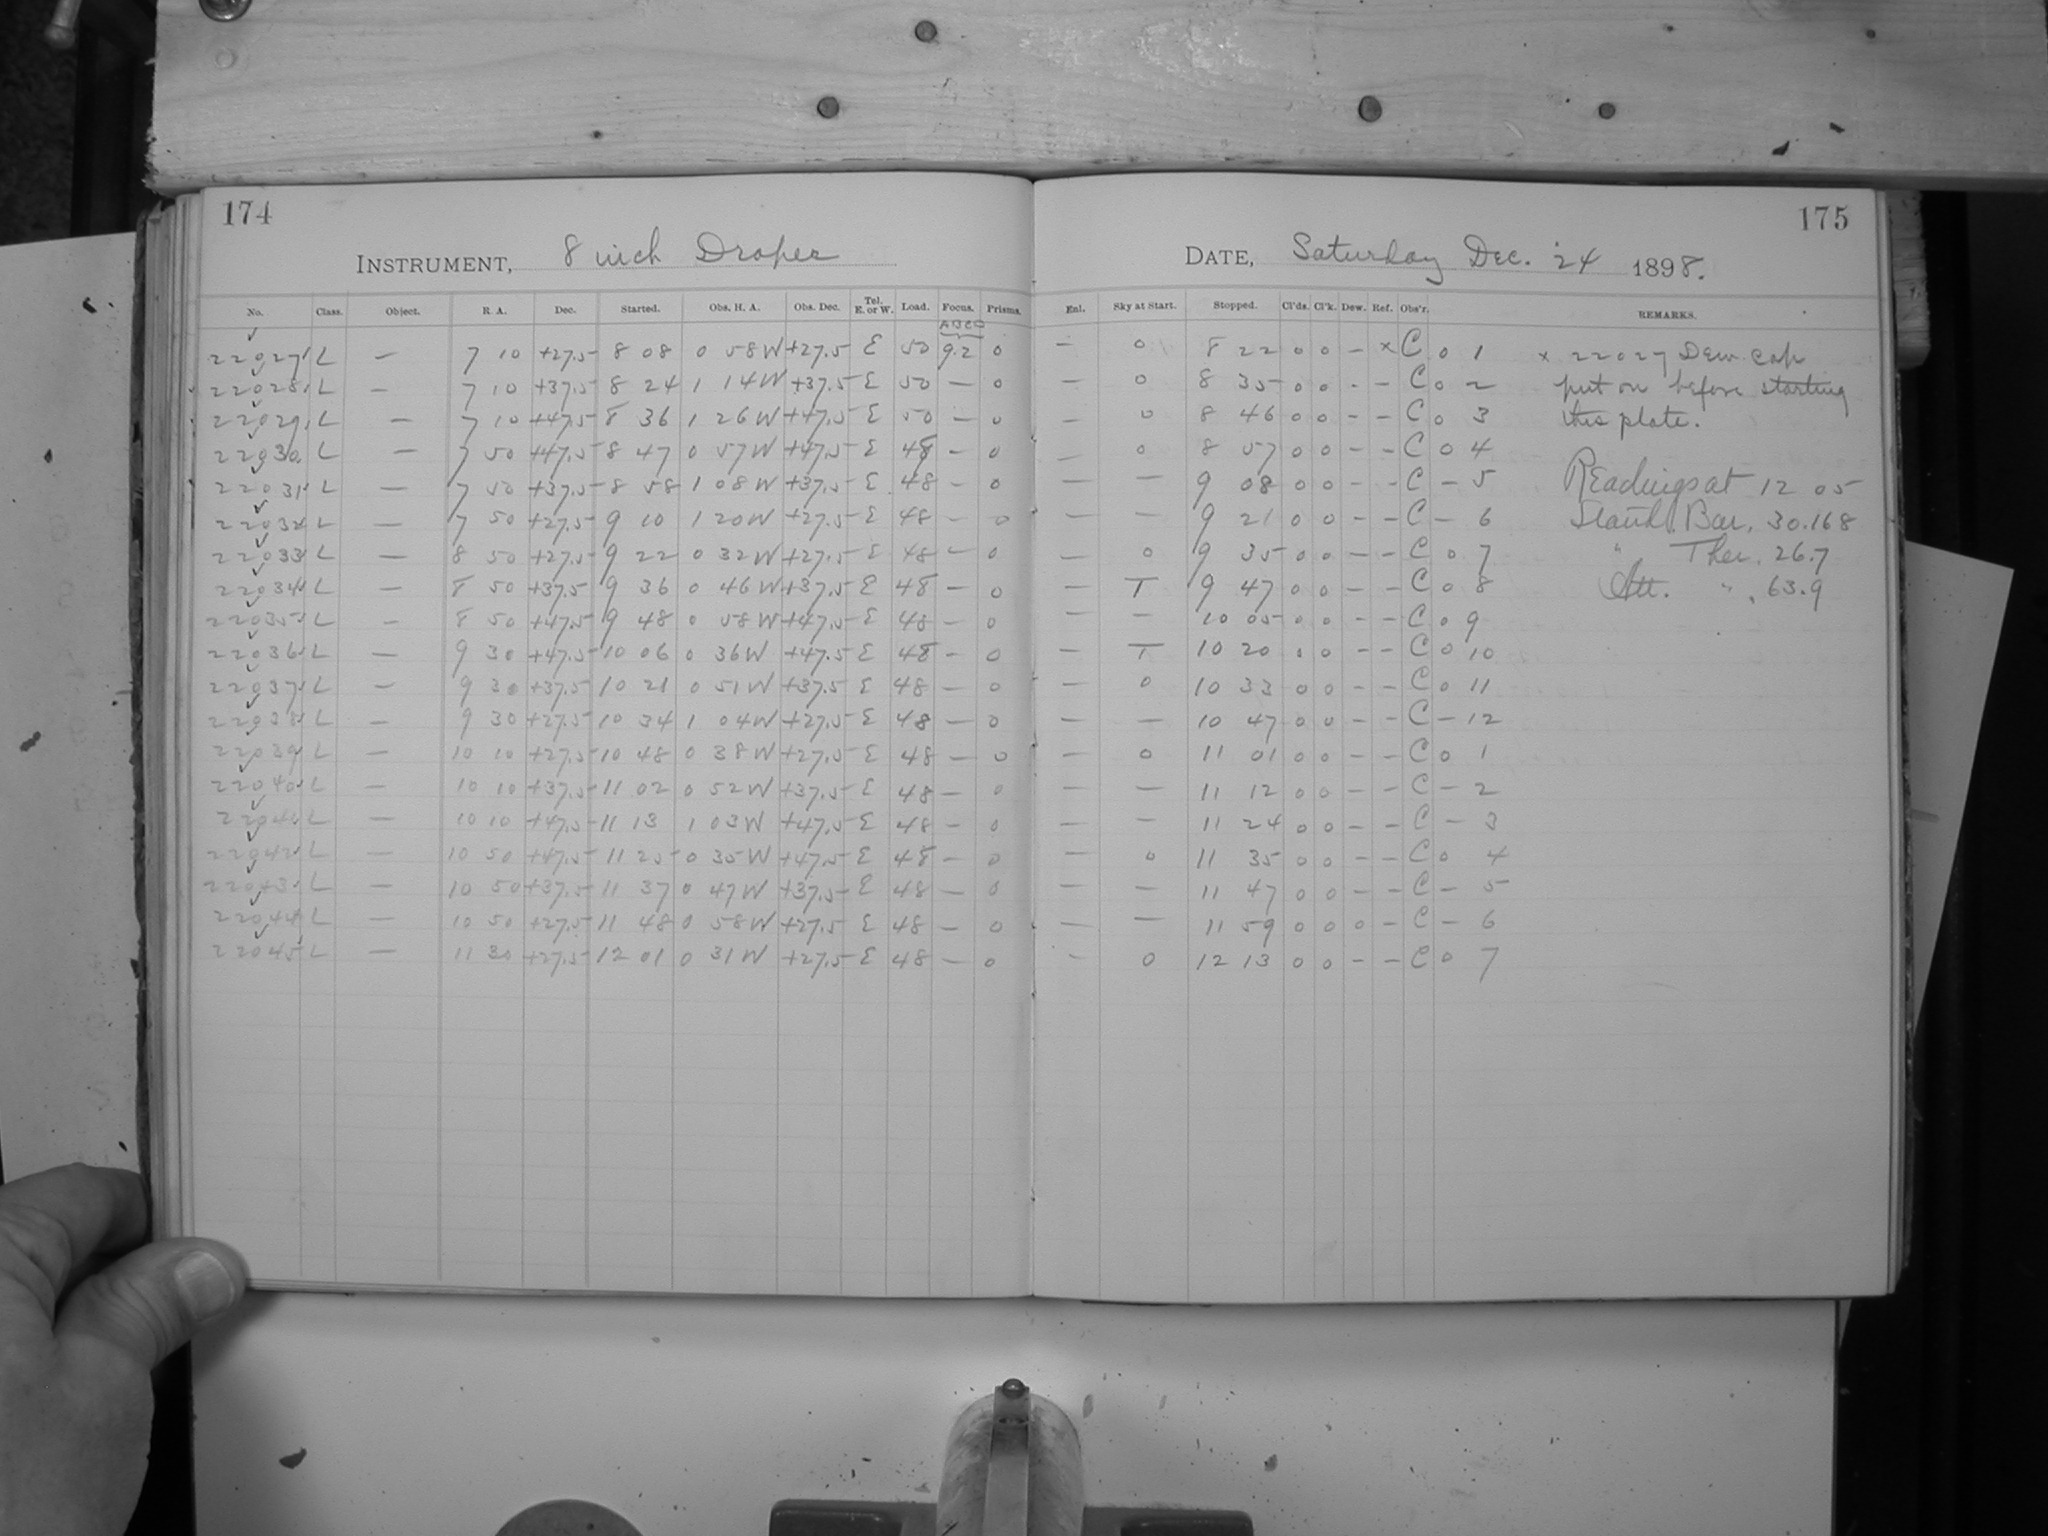 174
INSTRUMENT, 8 inch Draper
No. Class. Object. R. A. Dec. Started. Obs. H. A. Obs. Dec. Tel. E. or W. Load. Focus. Prisms.
ABCD
22027 L — 7 10 +27.5 8 08 0 58W +27.5 E 50 9.2 0
22028 L — 7 10 +37.5 8 24 1 14W +37.5 E 50 — 0
22029 L — 7 10 +47.5 8 36 1 26W +47.5 E 50 — 0
22030 L — 7 50 +47.5 8 47 0 57W +47.5 E 48 — 0
22031 L — 7 50 +37.5 8 58 1 08W +37.5 E 48 — 0
22032 L — 7 50 +27.5 9 10 1 20W +27.5 E 48 — 0
22033 L — 8 50 +27.5 9 22 0 32W +27.5 E 48 — 0
22034 L — 8 50 +37.5 9 36 0 46W +37.5 E 48 — 0
22035 L — 8 50 +47.5 9 48 0 58W +47.5 E 48 — 0
22036 L — 9 30 +47.5 10 06 0 36W +47.5 E 48 — 0
22037 L — 9 30 +37.5 10 21 0 51W +37.5 E 48 — 0
22038 L — 9 30 +27.5 10 34 1 04W +27.5 E 48 — 0
22039 L — 10 10 +27.5 10 48 0 38W +27.5 E 48 — 0
22040 L — 10 10 +37.5 11 02 0 52W +37.5 E 48 — 0
22041 L — 10 10 +47.5 11 13 1 03W +47.5 E 48 — 0
22042 L — 10 50 +47.5 11 25 0 35W +47.5 E 48 — 0
22043 L — 10 50 +37.5 11 37 0 47W +37.5 E 48 — 0
22044 L — 10 50 +27.5 11 48 0 58W +27.5 E 48 — 0
22045 L — 11 30 +27.5 12 01 0 31W +27.5 E 48 — 0
175
DATE, Saturday Dec. 24 1898.
Enl. Sky at Start. Stopped. Cl'ds. Cl'k. Dew. Ref. Obs'r. REMARKS.
— 0 8 22 0 0 — x C 0 1 x 22027 Dew cap
— 0 8 35 0 0 - - C 0 2 put on before starting
— 0 8 46 0 0 - - C 0 3 this plate.
— 0 8 57 0 0 - - C 0 4
— — 9 08 0 0 - - C — 5 Readings at 12 05
— — 9 21 0 0 - - C — 6 Stand. Bar. 30.168
— 0 9 35 0 0 - - C 0 7 " Ther. 26.7
— T 9 47 0 0 - - C 0 8 Att. " 63.9
— — 10 05 0 0 - - C 0 9
— T 10 20 0 0 - - C 0 10
— 0 10 33 0 0 - - C 0 11
— — 10 47 0 0 - - C — 12
— 0 11 01 0 0 - - C 0 1
— — 11 12 0 0 - - C — 2
— — 11 24 0 0 - - C — 3
— 0 11 35 0 0 - - C 0 4
— — 11 47 0 0 - - C — 5
— — 11 59 0 0 0 - C — 6
- 0 12 13 0 0 - - C 0 7